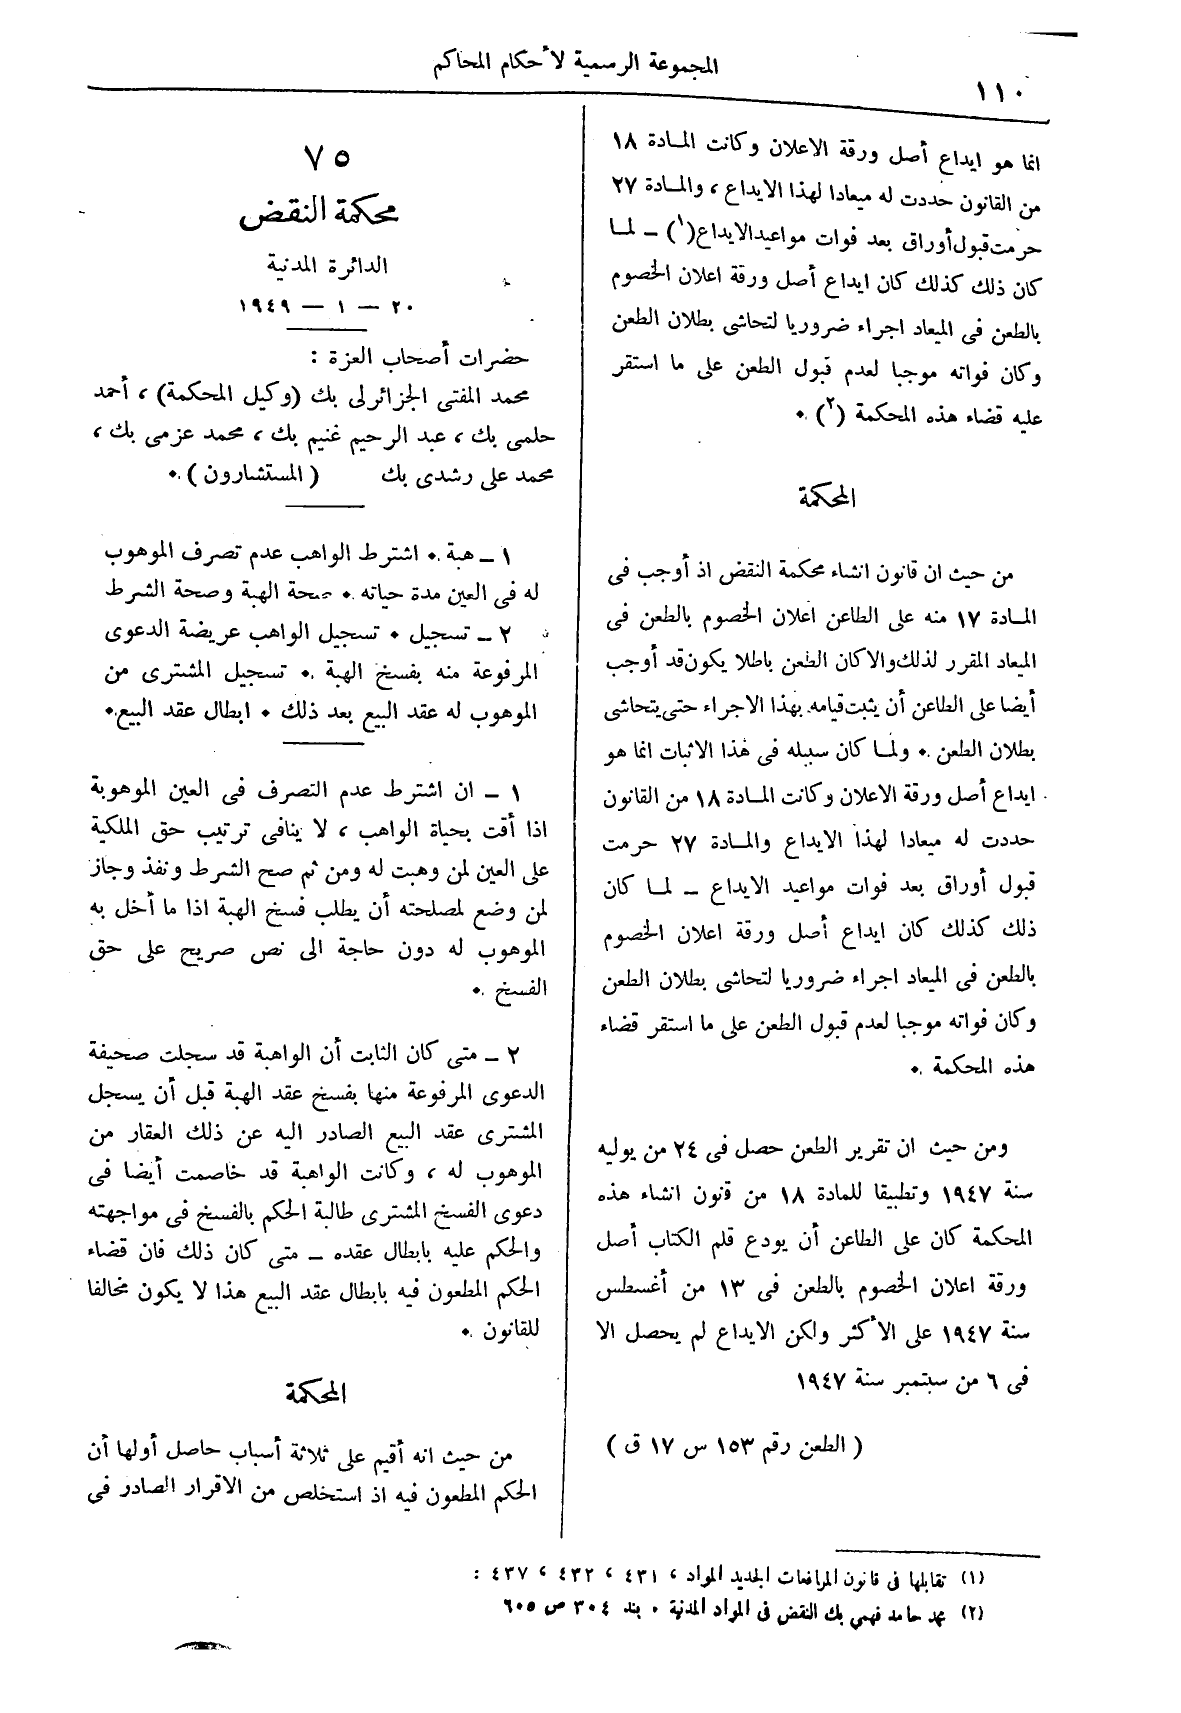 المجموعة الرسمية لأحكام المحاكم
١١٠
انما هو ايداع أصل ورقة الاعلان وكانت المادة ١٨
من القانون حددت له ميعادا لهذا الايداع ، والمادة ٢٧
حرمت قبول أوراق بعد فوات مواعيد الايداع (١) ــ لما
كان ذلك كذلك كان ايداع أصل ورقة اعلان الخصوم
بالطعن فى الميعاد اجراء ضروريا لتحاشى بطلان الطعن
وكان فواته موجبا لعدم قبول الطعن على ما استقر
عليه قضاء هذه المحكمة (٢) .
المحكمة
من حيث ان قانون انشاء محكمة النقض اذ أوجب فى
المادة ١٧ منه على الطاعن اعلان الخصوم بالطعن فى
الميعاد المقرر لذلك والا كان الطعن باطلا يكون قد أوجب
أيضا على الطاعن أن يثبت قيامه بهذا الاجراء حتى يتحاشى
بطلان الطعن . ولما كان سبيله فى هذا الاثبات انما هو
ايداع أصل ورقة الاعلان وكانت المادة ١٨ من القانون
حددت له ميعادا لهذا الايداع والمادة ٢٧ حرمت
قبول أوراق بعد فوات مواعيد الايداع ــ لما كان
ذلك كذلك كان ايداع أصل ورقة اعلان الخصوم
بالطعن فى الميعاد اجراء ضروريا لتحاشى بطلان الطعن
وكان فواته موجبا لعدم قبول الطعن على ما استقر قضاء
هذه المحكمة .
ومن حيث ان تقرير الطعن حصل فى ٢٤ من يوليه
سنة ١٩٤٧ وتطبيقا للمادة ١٨ من قنون انشاء هذه
المحكمة كان على الطاعن أن يودع قلم الكتاب أصل
ورقة اعلان الخصوم بالطعن فى ١٣ من أغسطس
سنة ١٩٤٧ على الأكثر ولكن الايداع لم يحصل الا
فى ٦ من سبتمبر سنة ١٩٤٧
( الطعن رقم ١٥٣ س ١٧ ق )
٧٥
محكمة النقض
الدائرة المدنية
٢٠ ــ ١ ــ ١٩٤٩
حضرات أصحاب العزة :
محمد المفتى الجزائرلى بك (وكيل المحكمة) ، أحمد
حلمى بك ، عبد الرحيم غنيم بك ، محمد عزمى بك ،
محمد على رشدى بك ( المستشارون ) .
١ ــ هبة . اشترط الواهب عدم تصرف الموهوب
له فى العين مدة حياته . صحة الهبة وصحة الشرط
٢ ــ تسجيل . تسجيل الواهب عريضة الدعوى
المرفوعة منه بفسخ الهبة . تسجيل المشترى من
الموهوب له عقد البيع بعد ذلك . ابطال عقد البيع .
١ ــ ان اشترط عدم التصرف فى العين الموهوبة
اذا أقت بحياة الواهب ، لا ينافى ترتيب حق الملكية
على العين لمن وهبت له ومن ثم صح الشرط ونفذ وجاز
لمن وضع لمصلحته أن يطلب فسخ الهبة اذا ما أخل به
الموهوب له دون حاجة الى نص صريح على حق
الفسخ .
٢ ــ متى كان الثابت أن الواهبة قد سجلت صحيفة
الدعوى المرفوعة منها بفسخ عقد الهبة قبل أن يسجل
المشترى عقد البيع الصادر اليه عن ذلك العقار من
الموهوب له ، وكانت الواهبة قد خاصمت أيضا فى
دعوى الفسخ المشترى طالبة الحكم بالفسخ فى مواجهته
والحكم عليه بابطال عقده ــ متى كان ذلك فان قضاء
الحكم المطعون فيه بابطال عقد البيع هذا لا يكون مخالفا
للقانون .
المحكمة
من حيث انه أقيم على ثلاثة أسباب حاصل أولها أن
الحكم المطعون فيه اذ استخلص من الاقرار الصادر فى
(١) تقابلها فى قانون المرافعات الجديد المواد ، ٤٣١ ، ٤٣٢ ، ٤٣٧ :
(٢) محمد حامد فهمي بك النقض فى المواد المدنية . بند ٣٠٤ ص ٦٠٥